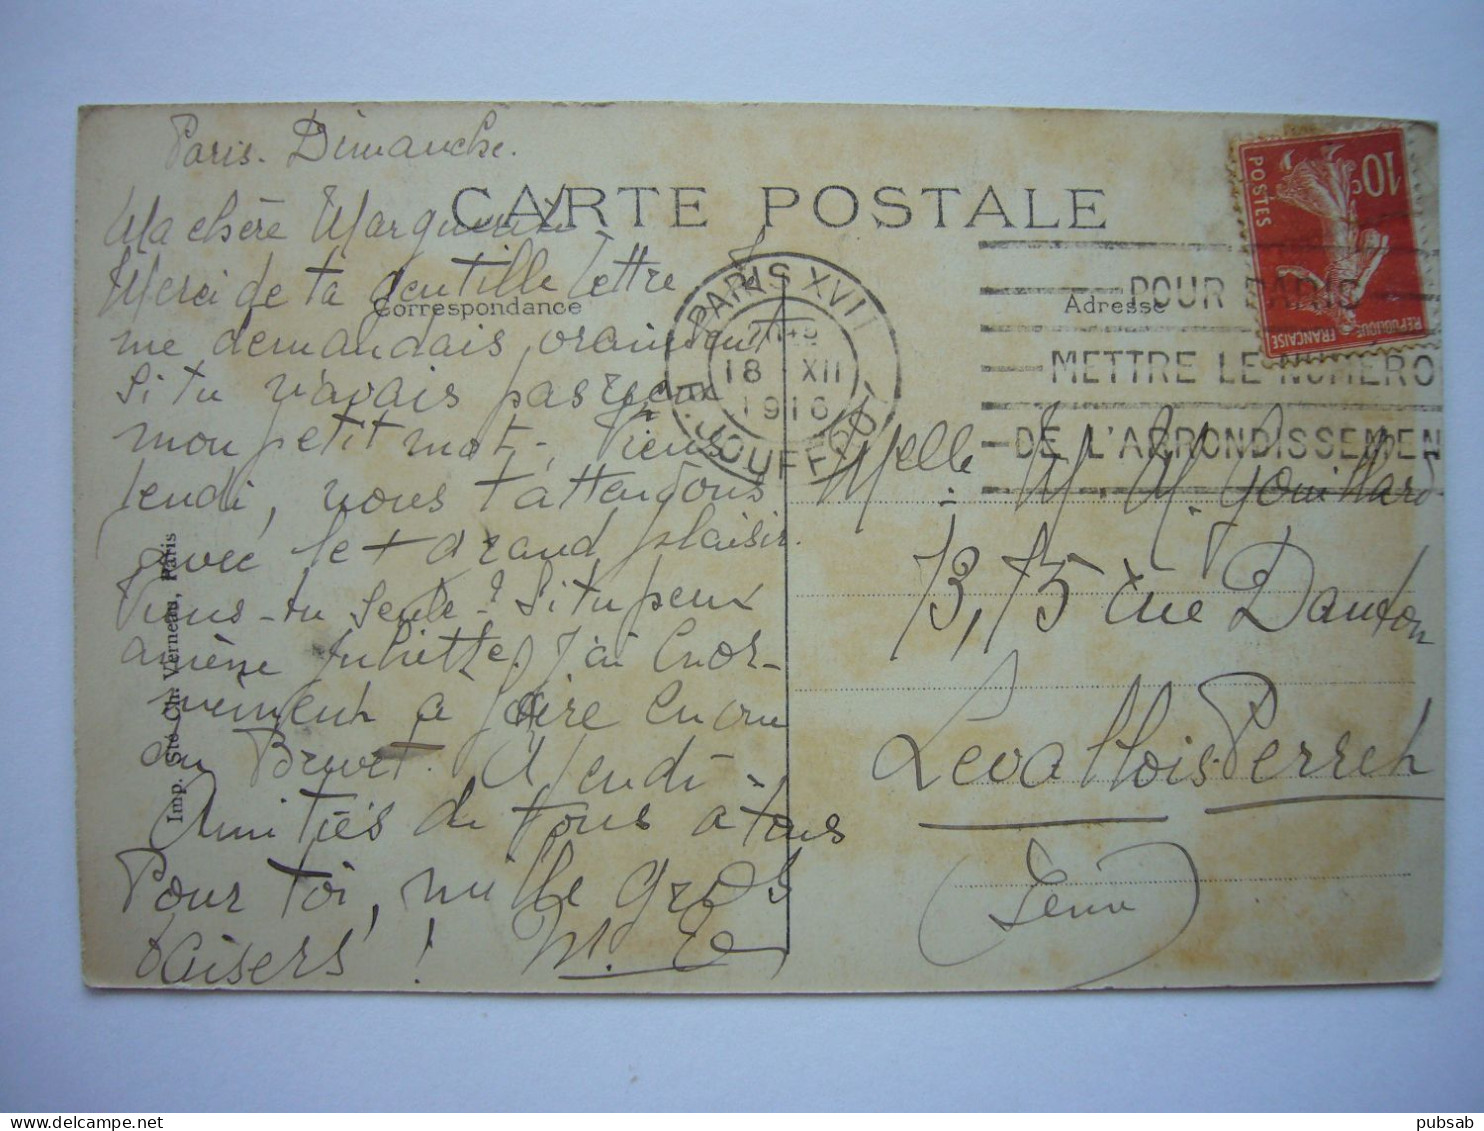 Paris. Dimanche.
CARTE POSTALE
Ma chère Marguerite
Merci de ta gentille lettre je
Correspondance
me demandais vraiment
si tu n'avais pas reçu
mon petit mot. Viens
Jeudi, nous t'attendons
avec le + grand plaisir.
Viens-tu seule? Si tu peux
amène Juliette. J'ai énor-
mément à faire encore
au Brevet. A Jeudi -
Amitiés de tous à tous
Pour toi, mille gros
baisers! M. E
Imp. Sté Ch. Verneau, Paris
PARIS XVII
18 XII
1916
R. JOUFFROY
POSTES
10c
REPUBLIQUE
FRANÇAISE
POUR PARIS
METTRE LE NUMERO
DE L'ARRONDISSEMEN
Adresse
Melle M. M. Gouillard
73, 75 rue Danton
Levallois-Perret
(Seine)
pubsab